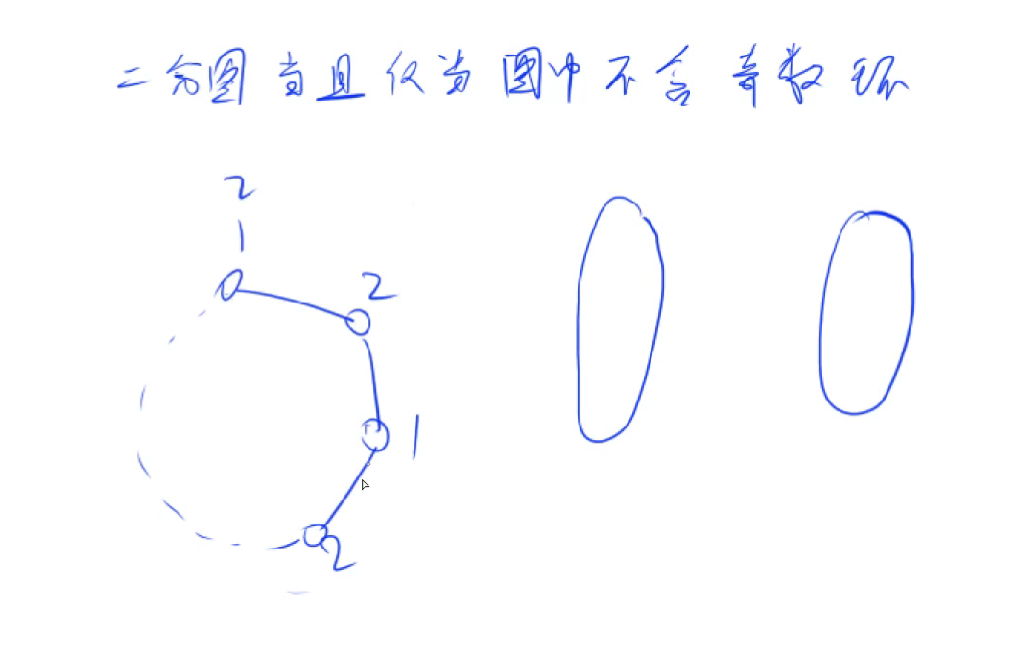 二分图当且仅当图中不含奇数环
2
1
2
1
2